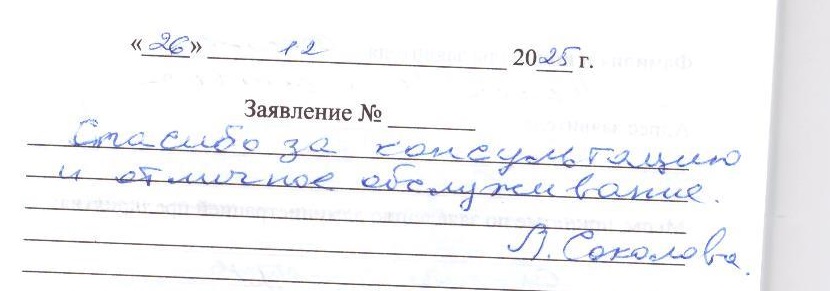 «26» 12 2025 г.
Заявление № ______
Спасибо за консультацию
и отличное обслуживание.
Л. Соколова.